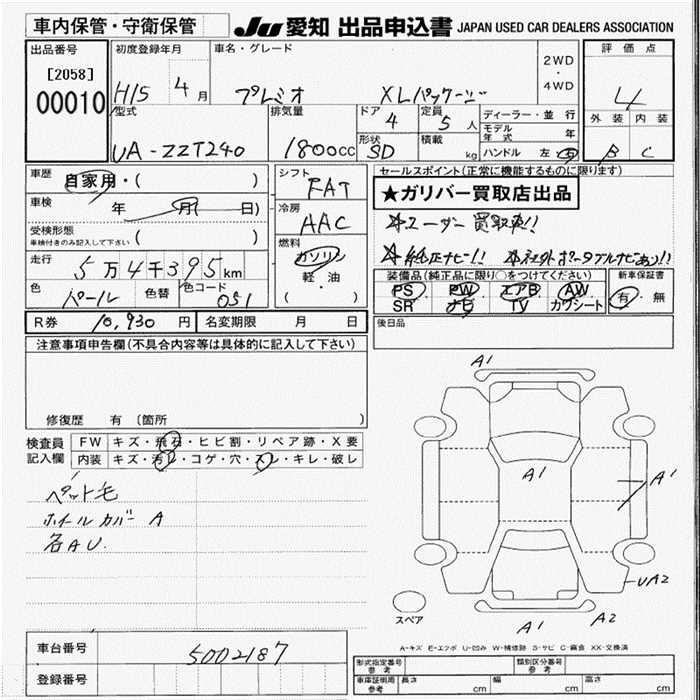 車内保管・守衛保管
JU 愛知 出品申込書 JAPAN USED CAR DEALERS ASSOCIATION
出品番号 初度登録年月 車名・グレード 評価点
[2058]
00010
H15 4月 プレミオ XLパッケージ 2WD・4WD 4
型式 排気量 ドア 4 定員 5人 ディーラー・並行 外装 内装
モデル年式 年
UA-ZZT240 1800cc 形状 SD 積載 kg ハンドル 左・右 B C
車歴 自家用・( ) シフト FAT セールスポイント(正常に機能するものに限ります)
★ガリバー買取店出品
車検 年 月( 日) 冷房 AAC ☆ユーザー買取車!!
受検形態
車検付きのみ記入して下さい ( )
燃料 ガソリン・軽・油 ☆純正ナビ!! ☆社外ポータブルナビあり!!
走行 5万4千395km 装備品(純正品に限り○をつけてください) 新車保証書
PS・PW・エアB・AW 有・無
色 パール 色替 色コード 051 SR・ナビ・TV・カワシート
R券 10,930円 名変期限 月 日 後日品
注意事項申告欄(不具合内容等は具体的に記入して下さい)
修復歴 有 〔箇所 〕
検査員記入欄 FW キズ・飛石・ヒビ割・リペア跡・X要
内装 キズ・汚レ・コゲ・穴・スレ・キレ・破レ
ペット毛
ホイールカバー A
各AU
A1
A1
A1
UA2
スペア A1 A2
A-キズ E-エクボ U-凹み W-補修跡 S-サビ C-腐食 XX-交換済
車台番号 5002187
登録番号
形式指定番号 参考 類別区分番号 参考
車庫証明用 参考 長さ cm 幅 cm 高さ cm